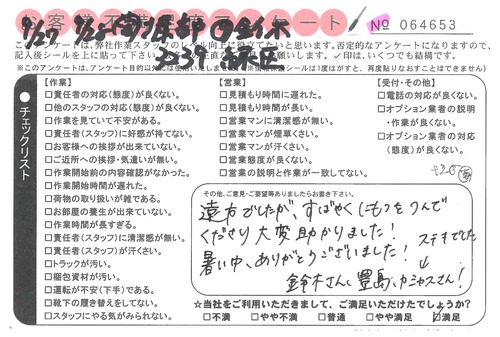 お客様不満足度アンケート
№ 064653
このアンケートは、弊社作業スタッフのレベル向上に役立てたいと思います。否定的なアンケートになりますので、
※このアンケートは、アンケート目的以外には
※情報保護シールは1度はがすと、再度貼りなおすことはできません)
チェックリスト
【作業】
□責任者の対応(態度)が良くない。
□他のスタッフの対応(態度)が良くない。
□作業を見ていて不安がある。
□責任者(スタッフ)に好感が持てない。
□お客様への挨拶が出来ていない。
□ご近所への挨拶・気遣いが無い。
□作業開始前の内容確認がなかった。
□作業開始時間が遅れた。
□荷物の取り扱いが雑である。
□お部屋の養生が出来ていない。
□作業時間が長すぎる。
□責任者(スタッフ)に清潔感が無い。
□責任者(スタッフ)が汗くさい。
□トラックが汚い。
□梱包資材が汚い。
□運転が不安(下手)である。
□靴下の履き替えをしてない。
□スタッフにやる気がみられない。
【営業】
□見積もり時間に遅れた。
□見積もり時間が長い。
□営業マンに清潔感が無い。
□営業マンが煙草くさい。
□営業マンが汗くさい。
□営業態度が良くない。
□営業の説明と作業が一致してない。
【受付・その他】
□電話の対応が良くない。
□オプション業者の説明
・作業が良くない。
□オプション業者の対応
(態度)が良くない。
その他、ご意見・ご要望等ありましたらお書き下さい。
遠方でしたが、すばやくにもつをうんで
くださり大変助かりました!
ステキでした
暑い中、ありがとうございました!
鈴木さん、豊島、カミヤスさん!
☆当社をご利用いただきまして、ご満足いただけてでしょうか?
□不満 □やや不満 □普通 □やや満足 ☑満足